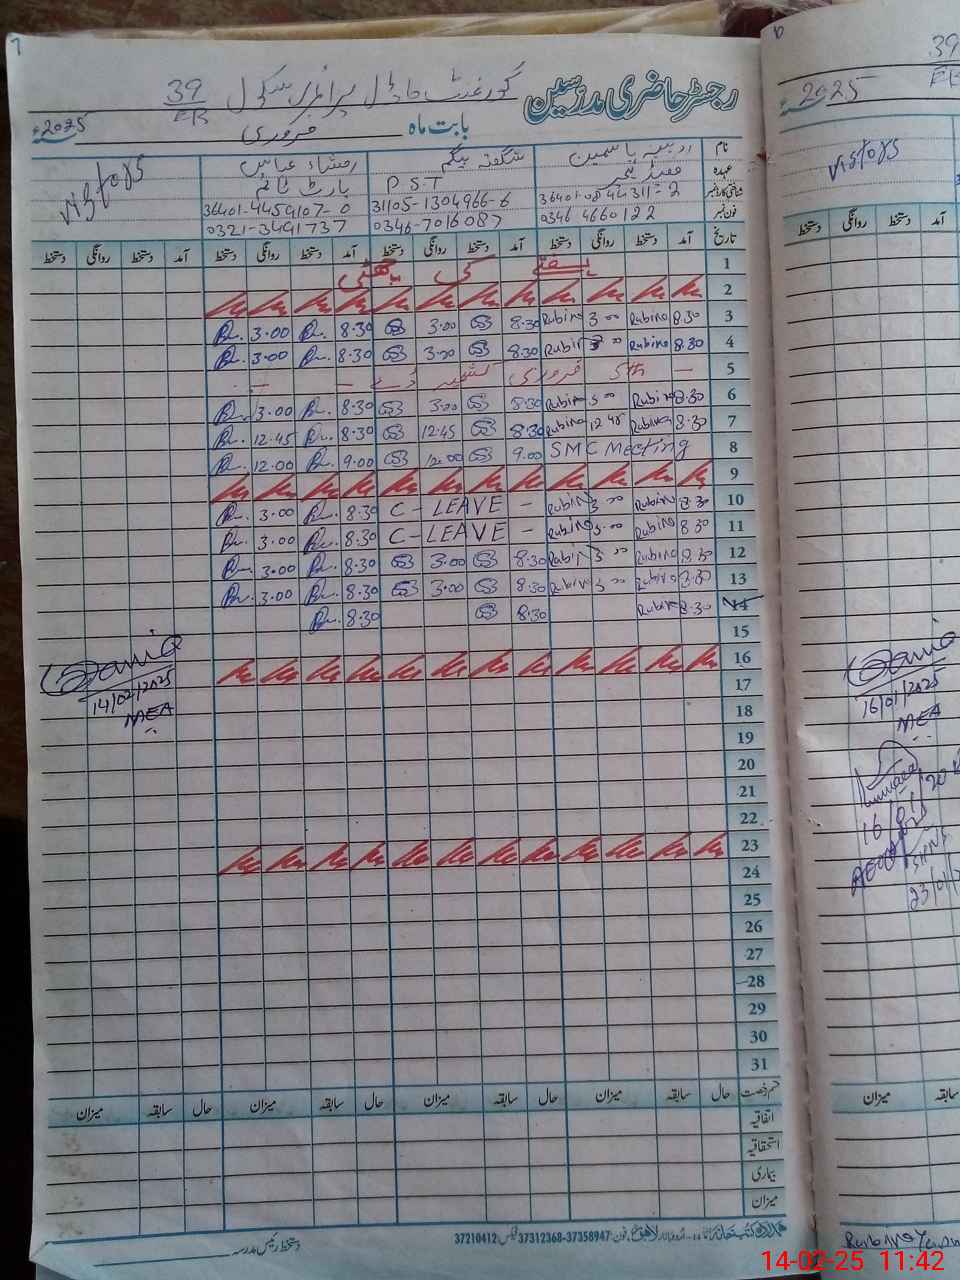 رجسٹر حاضری مدرسین گورنمنٹ ماڈل پرائمری سکول 39/EB
بابت ماہ فروری 2025
نام روبینہ یاسمین شگفتہ بیگم رمشاء عباس visitors
عہدہ P.S.T
شناختی کارڈ نمبر 31105-1304966-6 36401-4459107-0
فون نمبر 0346 4660122 0346-7016087 0321-3491737
تاریخ آمد دستخط روانگی دستخط آمد دستخط روانگی دستخط آمد دستخط روانگی دستخط آمد دستخط روانگی دستخط
1 ہفتے کی چھٹی
2
3 8.30 Rubina 3.00 Rubina 8.30 3.00 8.30 3.00
4 8.30 Rubina 3.00 Rubina 8.30 3.00 8.30 3.00
5 — 5th فروری کشمیر ڈے —
6 8.30 Rubina 3.00 Rubina 8.30 3.00 8.30 3.00
7 8.30 Rubina 12.45 Rubina 8.30 12.45 8.30 12.45
8 SMC Meeting 9.00 12.00 9.00 12.00
9
10 8.30 Rubina 3.00 Rubina C-LEAVE - 8.30 3.00
11 8.30 Rubina 3.00 Rubina C-LEAVE - 8.30 3.00
12 8.30 Rubina 3.00 Rubina 8.30 3.00 8.30 3.00
13 8.30 Rubina 3.00 Rubina 8.30 3.00 8.30 3.00
14 8.30 Rubina 8.30 8.30
15
16
17
18
19
20
21
22
23
24
25
26
27
28
29
30
31
14/02/2025
MEA
قسم رخصت حال سابقہ میزان حال سابقہ میزان حال سابقہ میزان حال سابقہ میزان
اتفاقیہ
استحقاقیہ
بیماری
میزان
فون: 37358947-37312368 فیکس: 37210412
دستخط رئیس مدرسہ
39
EB
2025
visitors
دستخط روانگی دستخط
16/01/2025
MEA
23/01/2
میزان سابقہ
14-02-25 11:42